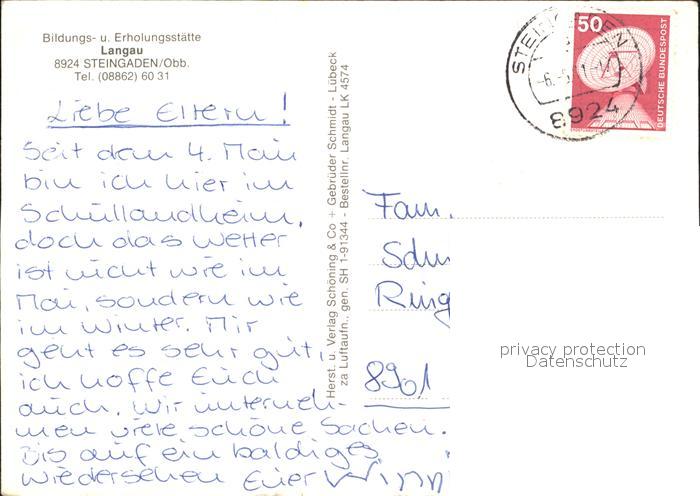 Bildungs- u. Erholungsstätte
Langau
8924 STEINGADEN/Obb.
Tel. (08862) 60 31
Liebe Eltern!
Seit dem 4. Mai
bin ich hier im
Schullandheim,
doch das Wetter
ist nicht wie im
Mai, sondern wie
im Winter. Mir
geht es sehr gut,
ich hoffe Euch
auch. Wir unterneh-
men viele schöne Sachen.
Bis auf ein baldiges
Wiedersehen Euer
Herst. u. Verlag Schöning & Co + Gebrüder Schmidt - Lübeck
za Luftaufn., gen. SH 1-91344 - Bestellnr. Langau LK 4574
50
DEUTSCHE BUNDESPOST
8924
Fam.
Ring
8961
privacy protection
Datenschutz